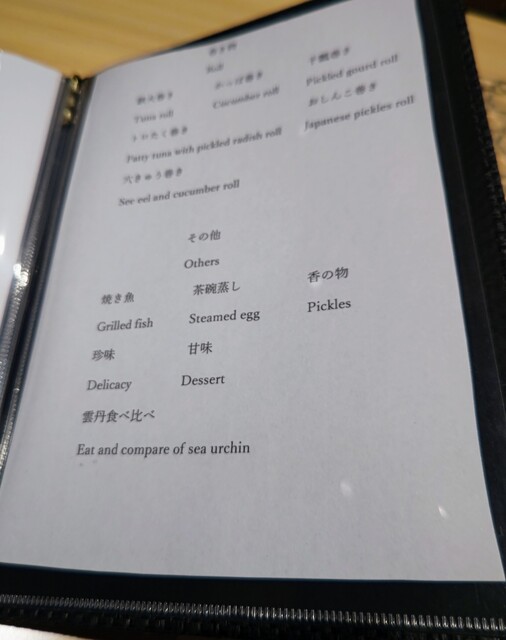 巻き物
Roll
鉄火巻き かっぱ巻き 干瓢巻き
Tuna roll Cucumber roll Pickled gourd roll
トロたく巻き おしんこ巻き
Fatty tuna with pickled radish roll Japanese pickles roll
穴きゅう巻き
See eel and cucumber roll
その他
Others
焼き魚 茶碗蒸し 香の物
Grilled fish Steamed egg Pickles
珍味 甘味
Delicacy Dessert
雲丹食べ比べ
Eat and compare of sea urchin